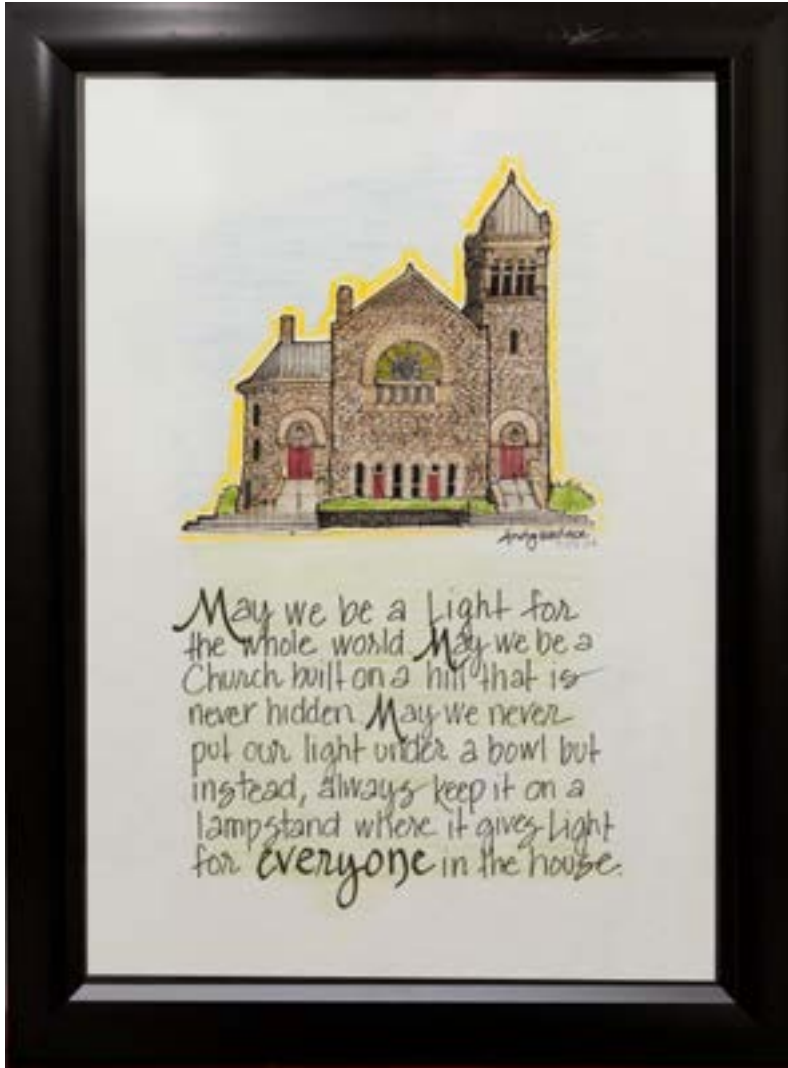 May we be a Light for
the whole world. May we be a
Church built on a hill that is
never hidden. May we never
put our light under a bowl but
instead, always keep it on a
lampstand where it gives Light
for everyone in the house.